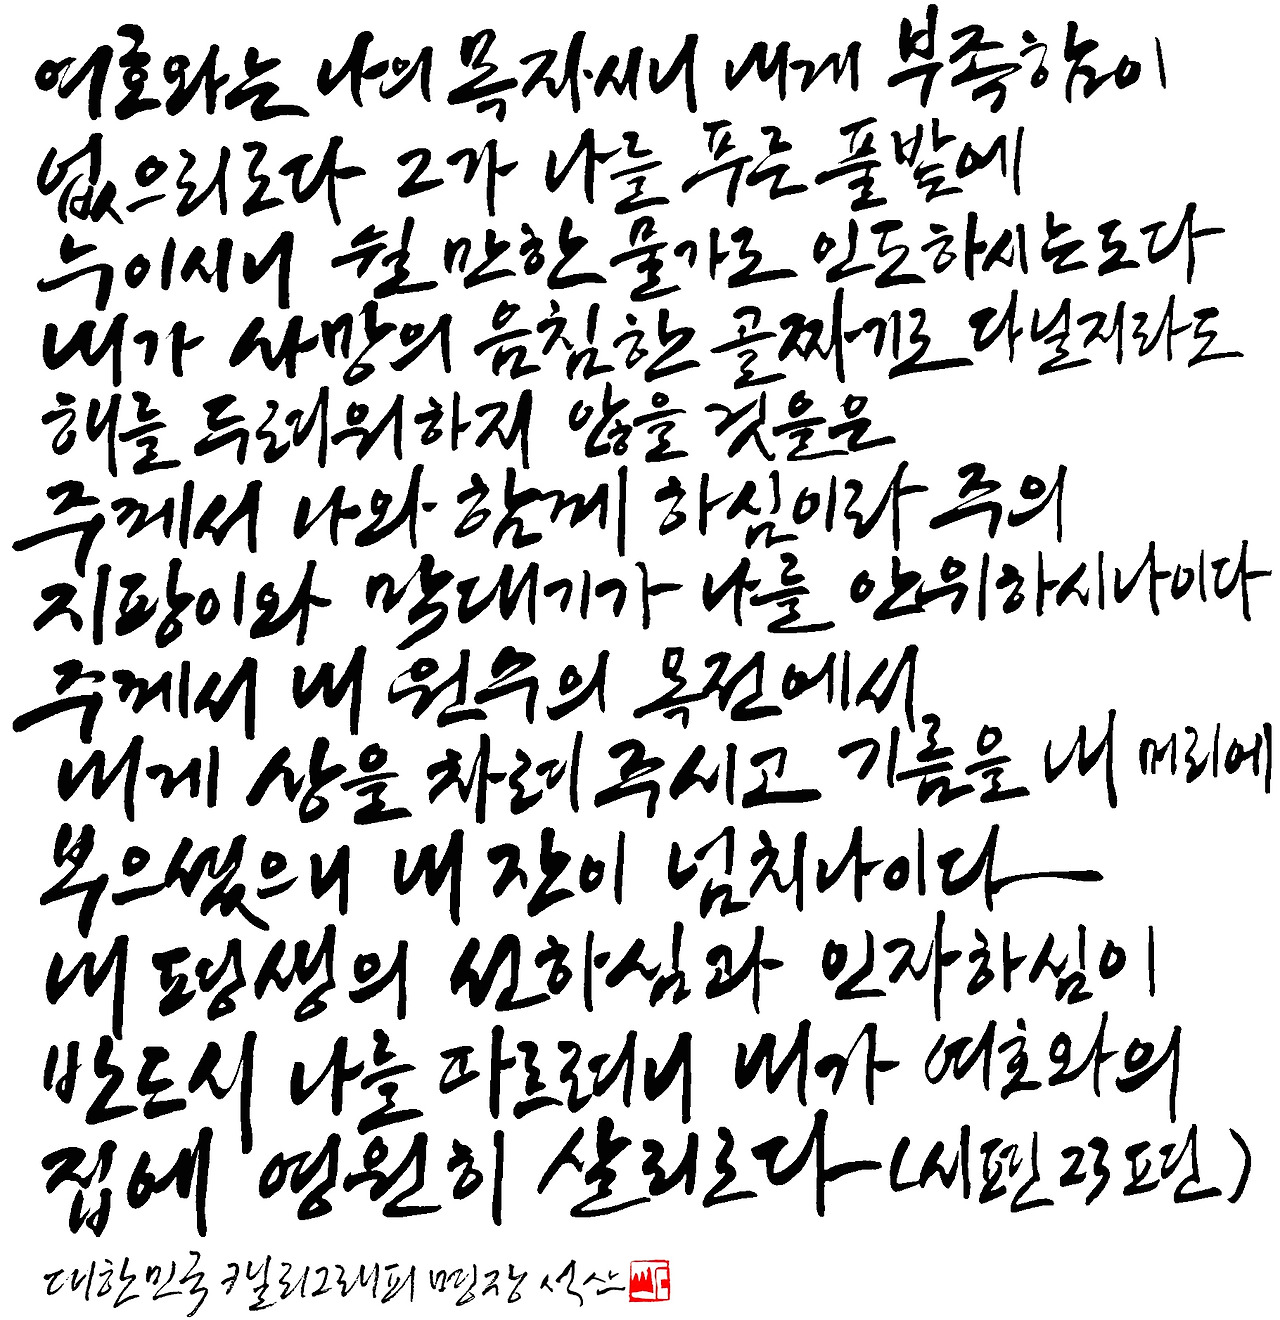 여호와는 나의 목자시니 내게 부족함이
없으리로다 그가 나를 푸른 풀밭에
누이시니 쉴 만한 물가로 인도하시는도다
내가 사망의 음침한 골짜기로 다닐지라도
해를 두려워하지 않을 것을은
주께서 나와 함께 하심이라 주의
지팡이와 막대기가 나를 안위하시나이다
주께서 내 원수의 목전에서
내게 상을 차려 주시고 기름을 내 머리에
부으셨으니 내 잔이 넘치나이다
내 평생의 선하심과 인자하심이
반드시 나를 따르리니 내가 여호와의
집에 영원히 살리로다 (시편 23편)
대한민국 캘리그래피 명장 석산